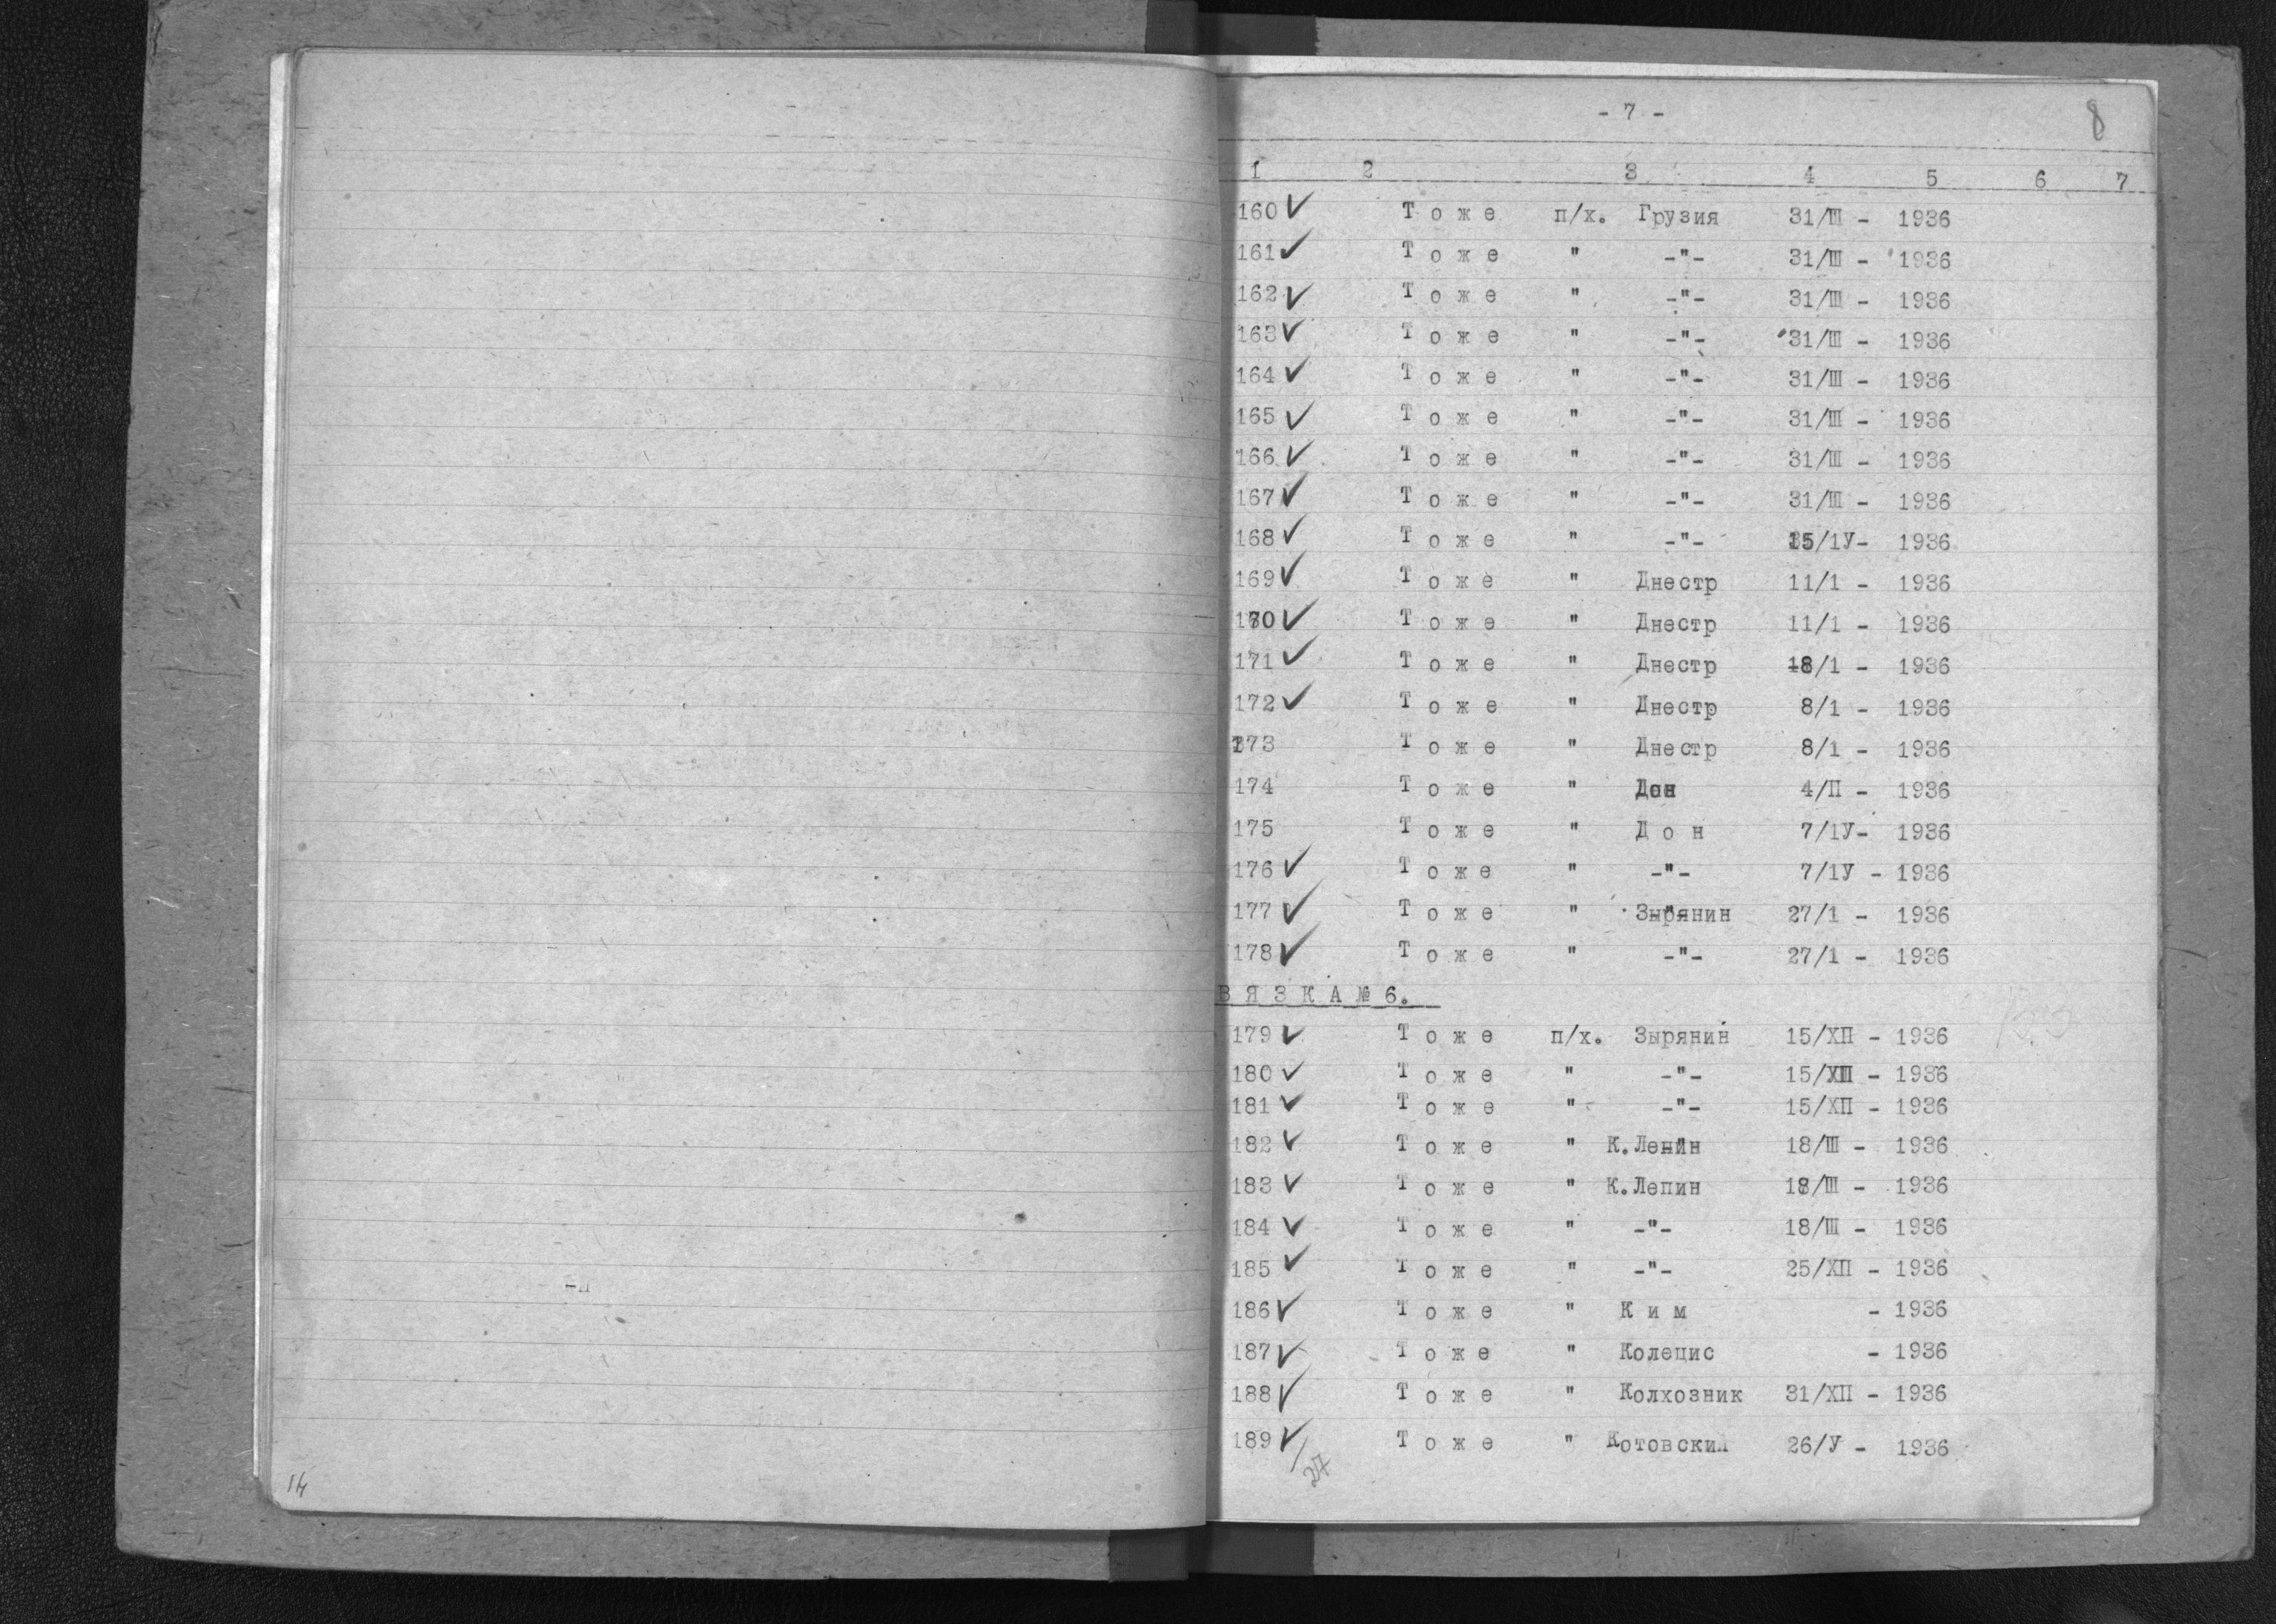 - 7 -
8
1 2 3 4 5 6 7
160 ✓ Т о ж е п/х. Грузия 31/III - 1936
161 ✓ Т о ж е " -"- 31/III - 1936
162 ✓ Т о ж е " -"- 31/III - 1936
163 ✓ Т о ж е " -"- 31/III - 1936
164 ✓ Т о ж е " -"- 31/III - 1936
165 ✓ Т о ж е " -"- 31/III - 1936
166 ✓ Т о ж е " -"- 31/III - 1936
167 ✓ Т о ж е " -"- 31/III - 1936
168 ✓ Т о ж е " -"- 15/1У- 1936
169 ✓ Т о ж е " Днестр 11/1 - 1936
170 ✓ Т о ж е " Днестр 11/1 - 1936
171 ✓ Т о ж е " Днестр 18/1 - 1936
172 ✓ Т о ж е " Днестр 8/1 - 1936
173 Т о ж е " Днестр 8/1 - 1936
174 Т о ж е " Дон 4/II - 1936
175 Т о ж е " Д о н 7/1У- 1936
176 ✓ Т о ж е " -"- 7/1У - 1936
177 ✓ Т о ж е " Зырянин 27/1 - 1936
178 ✓ Т о ж е " -"- 27/1 - 1936
В Я З К А № 6.
179 ✓ Т о ж е п/х. Зырянин 15/XII - 1936
180 ✓ Т о ж е " -"- 15/XII - 1936
181 ✓ Т о ж е " -"- 15/XII - 1936
182 ✓ Т о ж е " К.Ленин 18/III - 1936
183 ✓ Т о ж е " К.Лепин 18/III - 1936
184 ✓ Т о ж е " -"- 18/III - 1936
185 ✓ Т о ж е " -"- 25/XII - 1936
186 ✓ Т о ж е " К и м - 1936
187 ✓ Т о ж е " Колецис - 1936
188 ✓ Т о ж е " Колхозник 31/XII - 1936
189 ✓ Т о ж е " Котовский 26/У - 1936
27
14